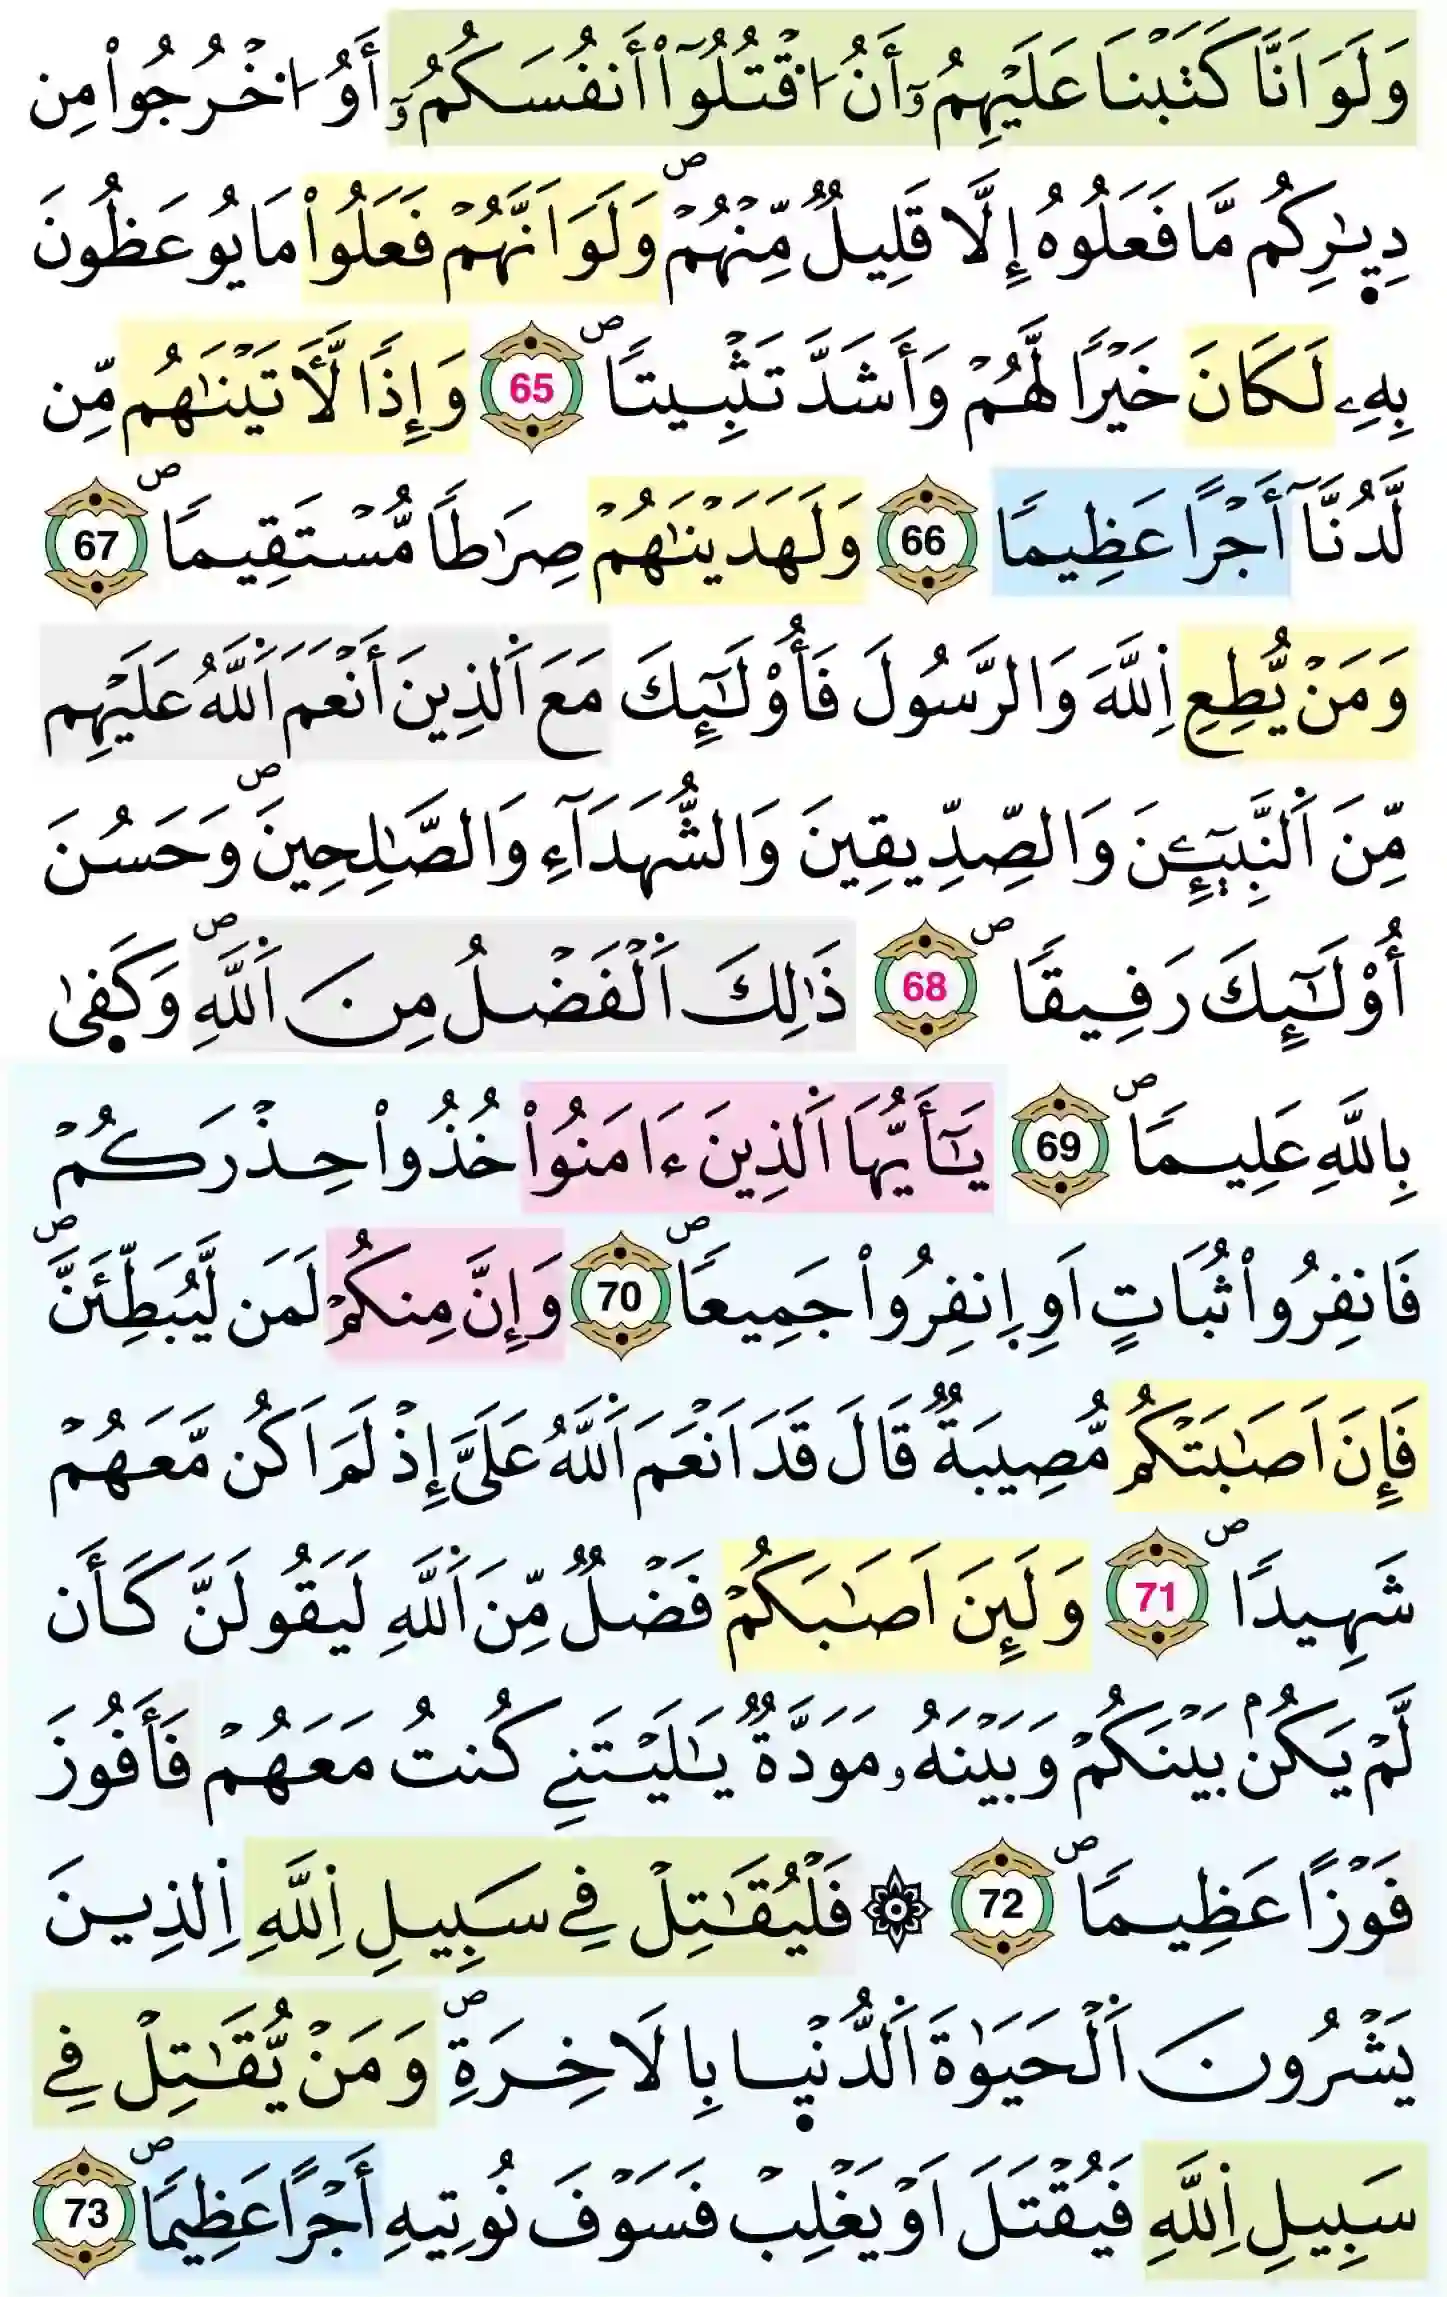 وَلَوَ اَنَّا كَتَبْنَا عَلَيْهِمُۥٓ أَنُ اُ۟قْتُلُوٓاْ أَنفُسَكُمُۥٓ أَوُ اُ۟خْرُجُواْ مِن
دِيٰ۪رِكُم مَّا فَعَلُوهُ إِلَّا قَلِيلٌ مِّنْهُمْۖ وَلَوَ اَنَّهُمْ فَعَلُواْ مَا يُوعَظُونَ
بِهِۦ لَكَانَ خَيْرًا لَّهُمْ وَأَشَدَّ تَثْبِيتًاۖ 65 وَإِذًا لَّأٓتَيْنَٰهُم مِّن
لَّدُنَّآ أَجْرًا عَظِيمًا 66 وَلَهَدَيْنَٰهُمْ صِرَٰطًا مُّسْتَقِيمًاۖ 67
وَمَنْ يُّطِعِ اِ۬للَّهَ وَالرَّسُولَ فَأُوْلَٰٓئِكَ مَعَ اَ۬لذِينَ أَنْعَمَ اَ۬للَّهُ عَلَيْهِم
مِّنَ اَ۬لنَّبِيٓـِٕۧنَ وَالصِّدِّيقِينَ وَالشُّهَدَآءِ وَالصَّٰلِحِينَۖ وَحَسُنَ
أُوْلَٰٓئِكَ رَفِيقًاۖ 68 ذَٰلِكَ اَ۬لْفَضْلُ مِنَ اَ۬للَّهِۖ وَكَف۪يٰ
بِاللَّهِ عَلِيمًاۖ 69 يَٰٓأَيُّهَا اَ۬لذِينَ ءَامَنُواْ خُذُواْ حِذْرَكُمْ
فَانفِرُواْ ثُبَاتٍ اَوِ اِ۪نفِرُواْ جَمِيعًاۖ 70 وَإِنَّ مِنكُمْ لَمَن لَّيُبَطِّئَنَّۖ
فَإِنَ اَصَٰبَتْكُم مُّصِيبَةٌ قَالَ قَدَ اَنْعَمَ اَ۬للَّهُ عَلَيَّ إِذْ لَمَ اَكُن مَّعَهُمْ
شَهِيدًاۖ 71 وَلَئِنَ اَصَٰبَكُمْ فَضْلٌ مِّنَ اَ۬للَّهِ لَيَقُولَنَّ كَأَن
لَّمْ يَكُنۢ بَيْنَكُمْ وَبَيْنَهُۥ مَوَدَّةٌ يَٰلَيْتَنِے كُنتُ مَعَهُمْ فَأَفُوزَ
فَوْزًا عَظِيمًاۖ 72 ۞ فَلْيُقَٰتِلْ فِے سَبِيلِ اِ۬للَّهِ اِ۬لذِينَ
يَشْرُونَ اَ۬لْحَيَوٰةَ اَ۬لدُّنْي۪ا بِالَاخِرَةِۖ وَمَنْ يُّقَٰتِلْ فِے
سَبِيلِ اِ۬للَّهِ فَيُقْتَلَ اَوْ يَغْلِبْ فَسَوْفَ نُوتِيهِ أَجْرًا عَظِيمًاۖ 73